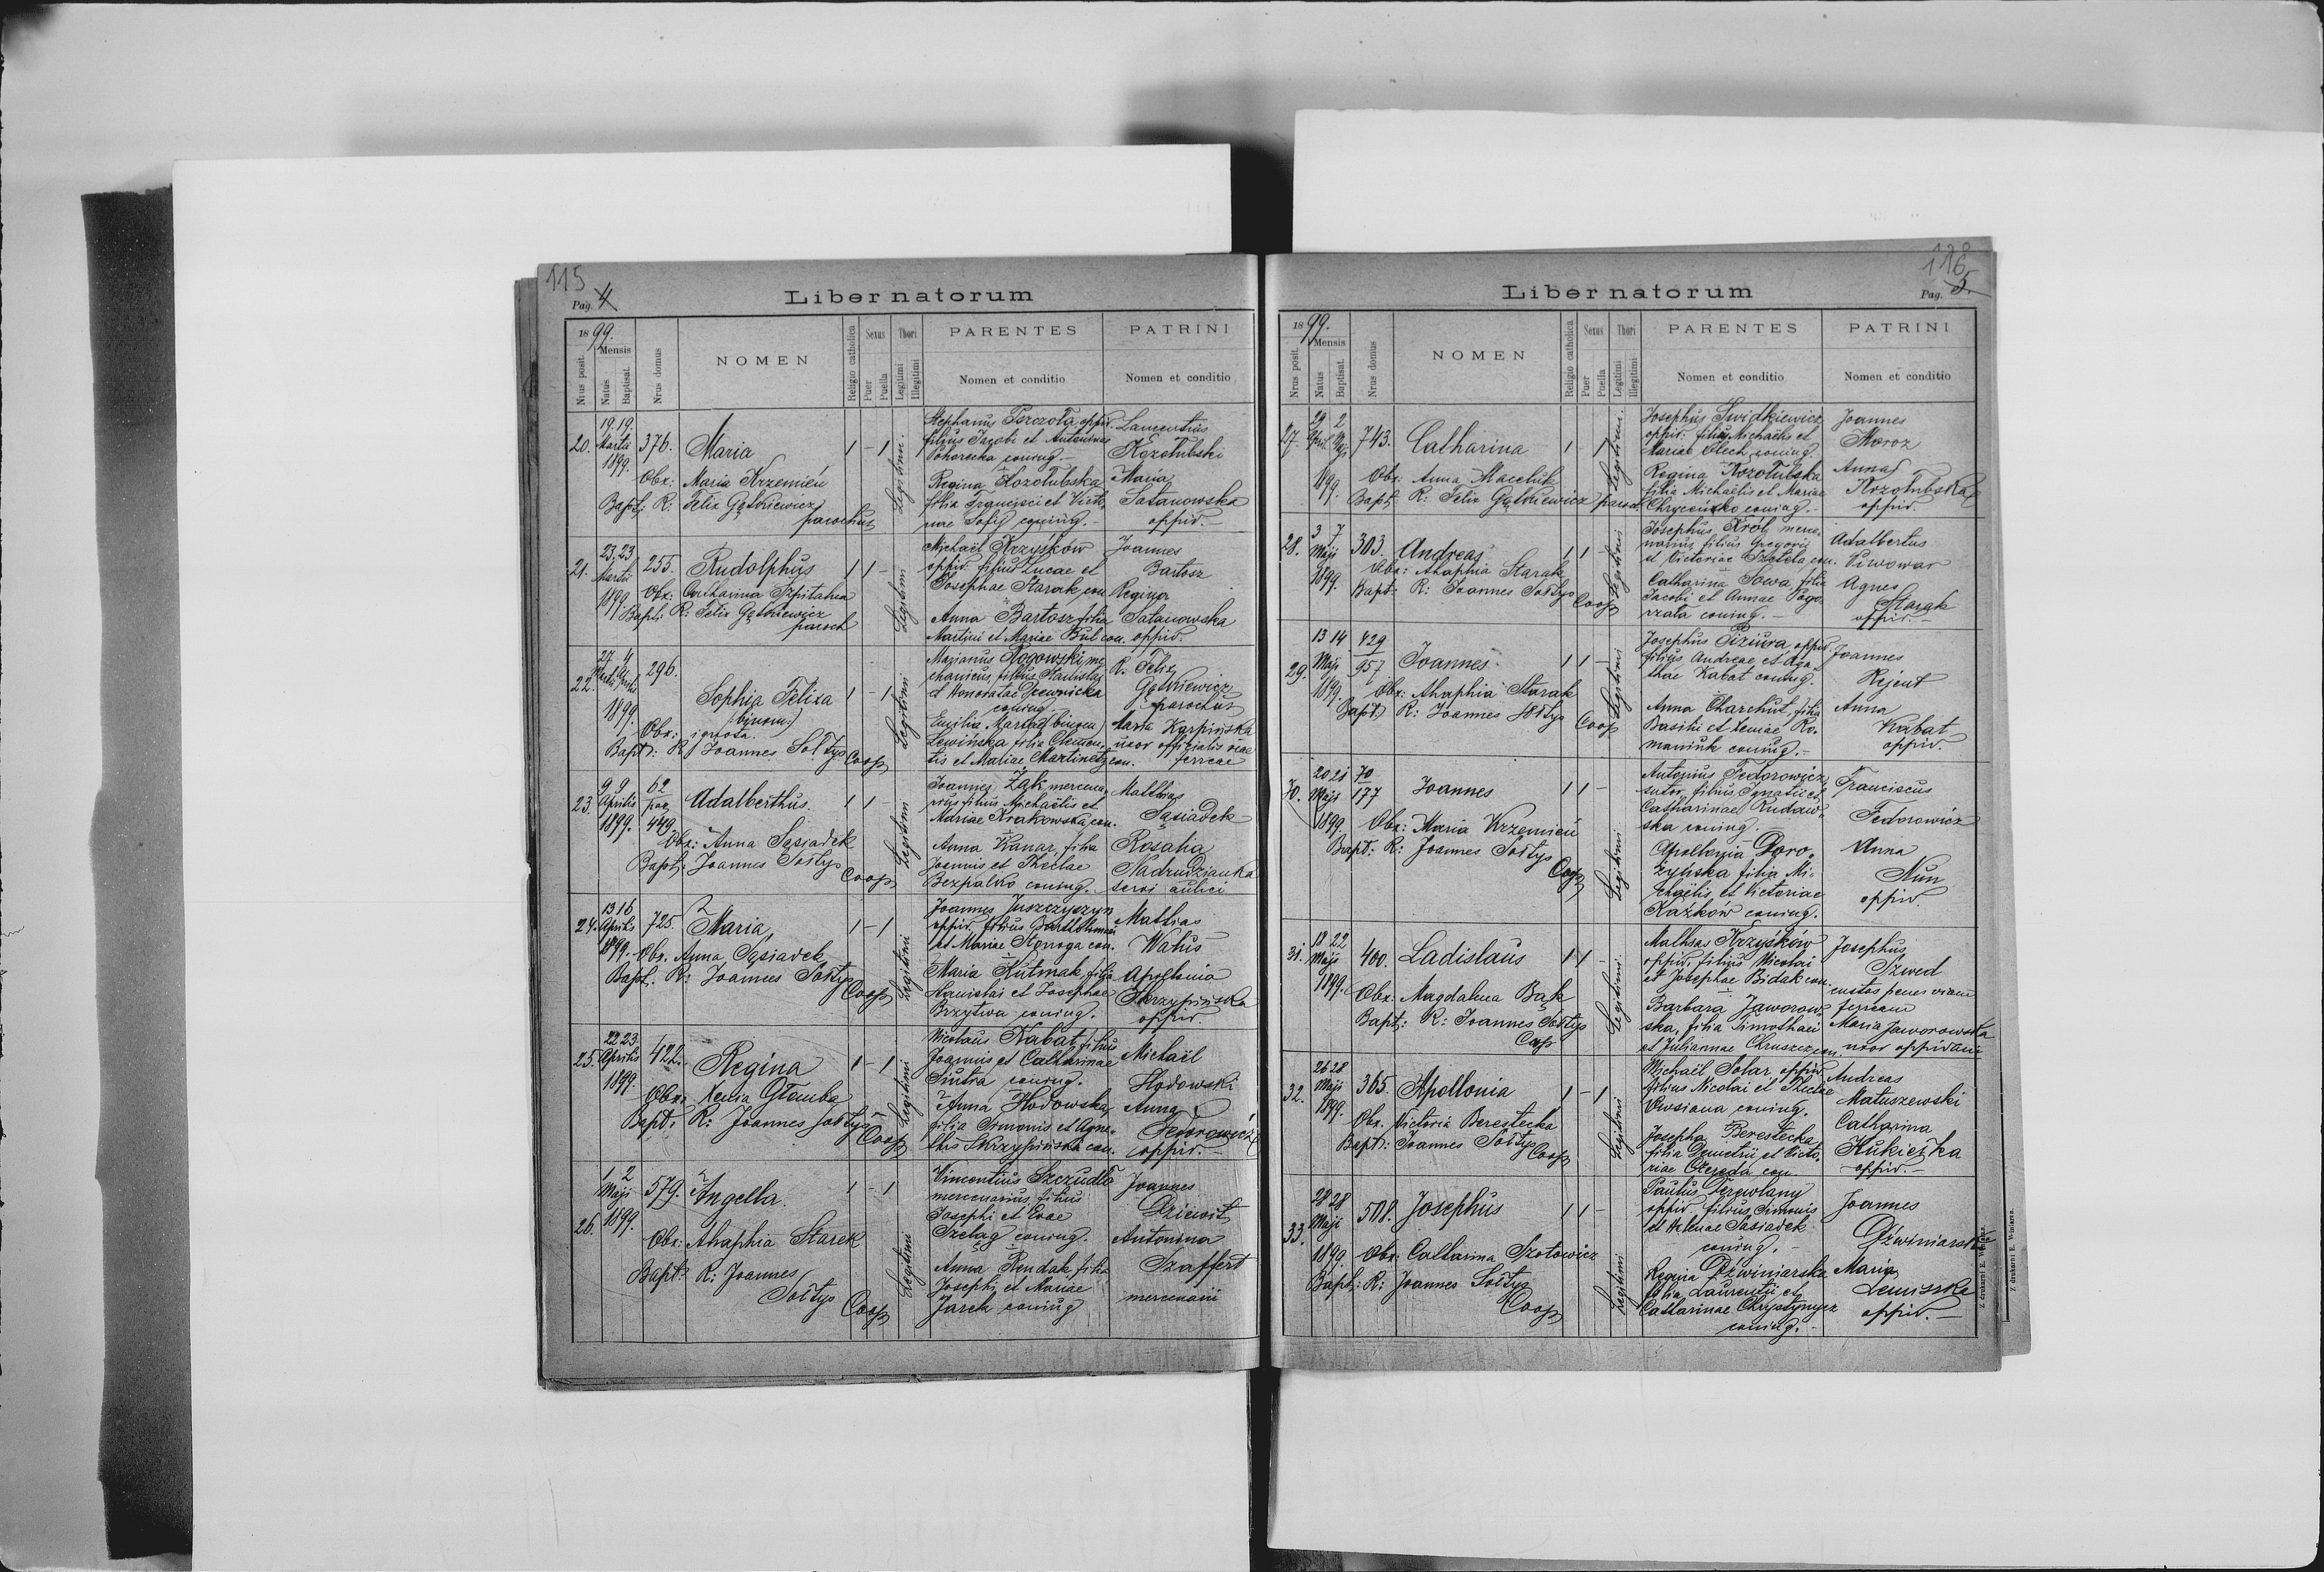 115
Pag. 4
Liber natorum
1899.
Mensis
Nrus posit.
Natus
Baptisat.
Nrus domus
NOMEN
Religio catholica
Sexus
Puer
Puella
Thori
Legitimi
Illegitimi
PARENTES
Nomen et conditio
PATRINI
Nomen et conditio
20.
19. 19.
Martii
1899.
376.
Maria
1 - 1
Obx: Maria Krzemień
Bapt. R: Felix Gątkiewicz
parochus
Legitimi.
Stephanus Pszczoła oppid.
filius Jacobi et Antoninae
coniug.
Regina Kozołubska
filia Francisci et Victo
coniug.
Laurentius
Kozołubski
Maria
Satanowska
oppid.
21.
23. 23
Martii
1899
255.
Rudolphus
1 1 -
Obx: Catharina Szpitalna
Bapt: R: Felix Gątkiewicz
paroch
Legitimi
Michaël Krzyśków
oppid. filius Lucae et
Josephae Starak con
Anna Bartosz filia
Martini et Mariae Bul con.
Joannes
Bartosz
Regina
Satanowska
oppid.
22.
27 4
1899
296.
Sophia Felixa
(binom.)
1 - 1
Obx: ignota.
Bapt: R: Joannes Sołtys Coop
Legitimi
Marianus Rogowski me
chanicus, filius Stanislai
et Honoratae Drewnicka
coniug.
Emilia Martha (binom)
Lewińska filia Clemen
tis et Mariae Martinetz con.
R. Felix
Gątkiewicz
parochus
Maria Karpińska
uxor officialis viae
ferreae
23
9 9
Aprilis
1899.
62
449
Adalberthus.
1 1 -
Obx: Anna Sąsiadek
Bapt: Joannes Sołtys
Coop
Legitimi
Joannes Żak mercena
rius filius Michaëlis et
Mariae Krakowska con.
Anna Kanar, filia
Joannis et Theclae
Bezpalko coniug.
Mathias
Sąsiadek
Rosalia
Nadrudzianka
servi aulici
24.
13 16
Aprilis
1899.
725.
Maria
1 - 1
Obx. Anna Sąsiadek
Bapt. R: Joannes Sołtys
Coop
Legitimi
Joannes Juszczyszyn
oppid. filius Bartholomaei
et Mariae con.
Maria Kutmak, filia
Stanislai et Josephae
Brzytwa coniug.
Mathias
Waliś
Apollonia
Skrzypińska
oppid.
25.
22 23
Aprilis
1899.
422.
Regina
1 - 1
Obx: Xenia Głemba
Bapt. R: Joannes Sołtys
Coop
Legitimi
Nicolaus Kabat, filius
Joannis et Catharinae
Siutra coniug.
Anna Hodowska,
filia Simonis et Agne
this Skrzypińska con.
Michaël
Hodowski
Anna
Fedorowicz
oppid.
26.
1 2
Maji
1899.
579.
Angella.
1 - 1
Obx: Ahaphia Starek
Bapt: R: Joannes
Sołtys Coop
Legitimi
Vincentius Szczudło
mercenarius, filius
Josephi et Evae
Szeląg coniug.
Anna Rendak filia
Josephi et Mariae
Jarek coniug
Joannes
Dziewit
Antonina
Szaffert
mercenarii
116
Pag. 5.
Liber natorum
1899.
Mensis
Nrus posit.
Natus
Baptisat.
Nrus domus
NOMEN
Religio catholica
Sexus
Puer
Puella
Thori
Legitimi
Illegitimi
PARENTES
Nomen et conditio
PATRINI
Nomen et conditio
27.
29 2
April Maji
1899.
743.
Catharina
1 - 1
Obx. Anna Macehuk
Bapt. R: Felix Gątkiewicz paroch
Legitimi.
Josephus Swidkiewicz
oppid: filius Michaëlis et
Mariae Olech coniug.
Regina Kozołubska
filia Michaëlis et Mariae
coniug.
Joannes
Moroz
Anna
Kozołubska
oppid.
28.
3 7
Maji
1899.
303.
Andreas
1 1
Obx: Ahaphia Starak
Bapt: R: Joannes Sołtys Coop
Legitimi
Josephus Król merce
narius filius Gregorii
et Victoriae Szetela con.
Catharina Sowa, filia
Jacobi et Annae Pogo
rzata coniug.
Adalbertus
Piwowar
Agnes
Starak
oppid.
29.
13 14
Maji
1899.
429
957
Joannes
1 1 -
Obx: Ahaphia Starak
Bapt) R: Joannes Sołtys
Coop
Legitimi
Josephus Piziura oppid
filius Andreae et Aga
thae Kabat coniug.
Anna Charchut, filia
Basilii et Xeniae Ro
maniuk coniug.
Joannes
Rejent
Anna
Kabat
oppid.
30.
20 21
Maji
1899.
70
177
Joannes
1 1 -
Obx: Maria Krzemień
Bapt: R: Joannes Sołtys
Coop
Legitimi
Antonius Fedorowicz,
sutor, filius Ignatii et
Catharinae Rudaw
ska coniug.
Apollonia Doro
żyńska filia Mi
chaëlis et Victoriae
Kaźków coniug.
Franciscus
Fedorowicz
Anna
Nun
oppid.
31.
18 22
Maji
1899.
400.
Ladislaus
1 1 -
Obx. Magdalena Bąk
Bapt: R: Joannes Sołtys
Coop
Legitimi.
Mathias Krzyśków
oppid. filius Nicolai
et Josephae Bidak con.
Barbara Jaworow
ska, filia Timothaei
et Juliannae Chruszcz con.
Josephus
Szwed
custos penes viam
ferream
Maria Jaworowska
uxor oppidani
32.
26 28
Maji
1899.
365.
Apollonia
1 - 1
Obx. Victoria Berestecka
Bapt: Joannes Sołtys
Coop
Legitimi
Michaël Solar, oppid.
filius Nicolai et Theclae
Owsiana coniug.
Josepha Berestecka
filia Demetrii et Victo
riae Ożereda con
Andreas
Matuszewski
Catharina
Kukiełka
oppid.
33.
28 28
Maji
1899
508.
Josephus
1 1 -
Obx: Catharina Szotowicz
Bapt: R: Joannes Sołtys
Coop
Legitimi
Paulus Derewlany
oppid. filius Simonis
et Helenae Sąsiadek
coniug.
Regina Dźwiniarska
filia Laurentii et
Catharinae Chrystynycz
coniug.
Joannes
Dźwiniarski
Maria
Lewisska
oppid.
Z drukarni E. Winiarza.
Z drukarni E. Winiarza.